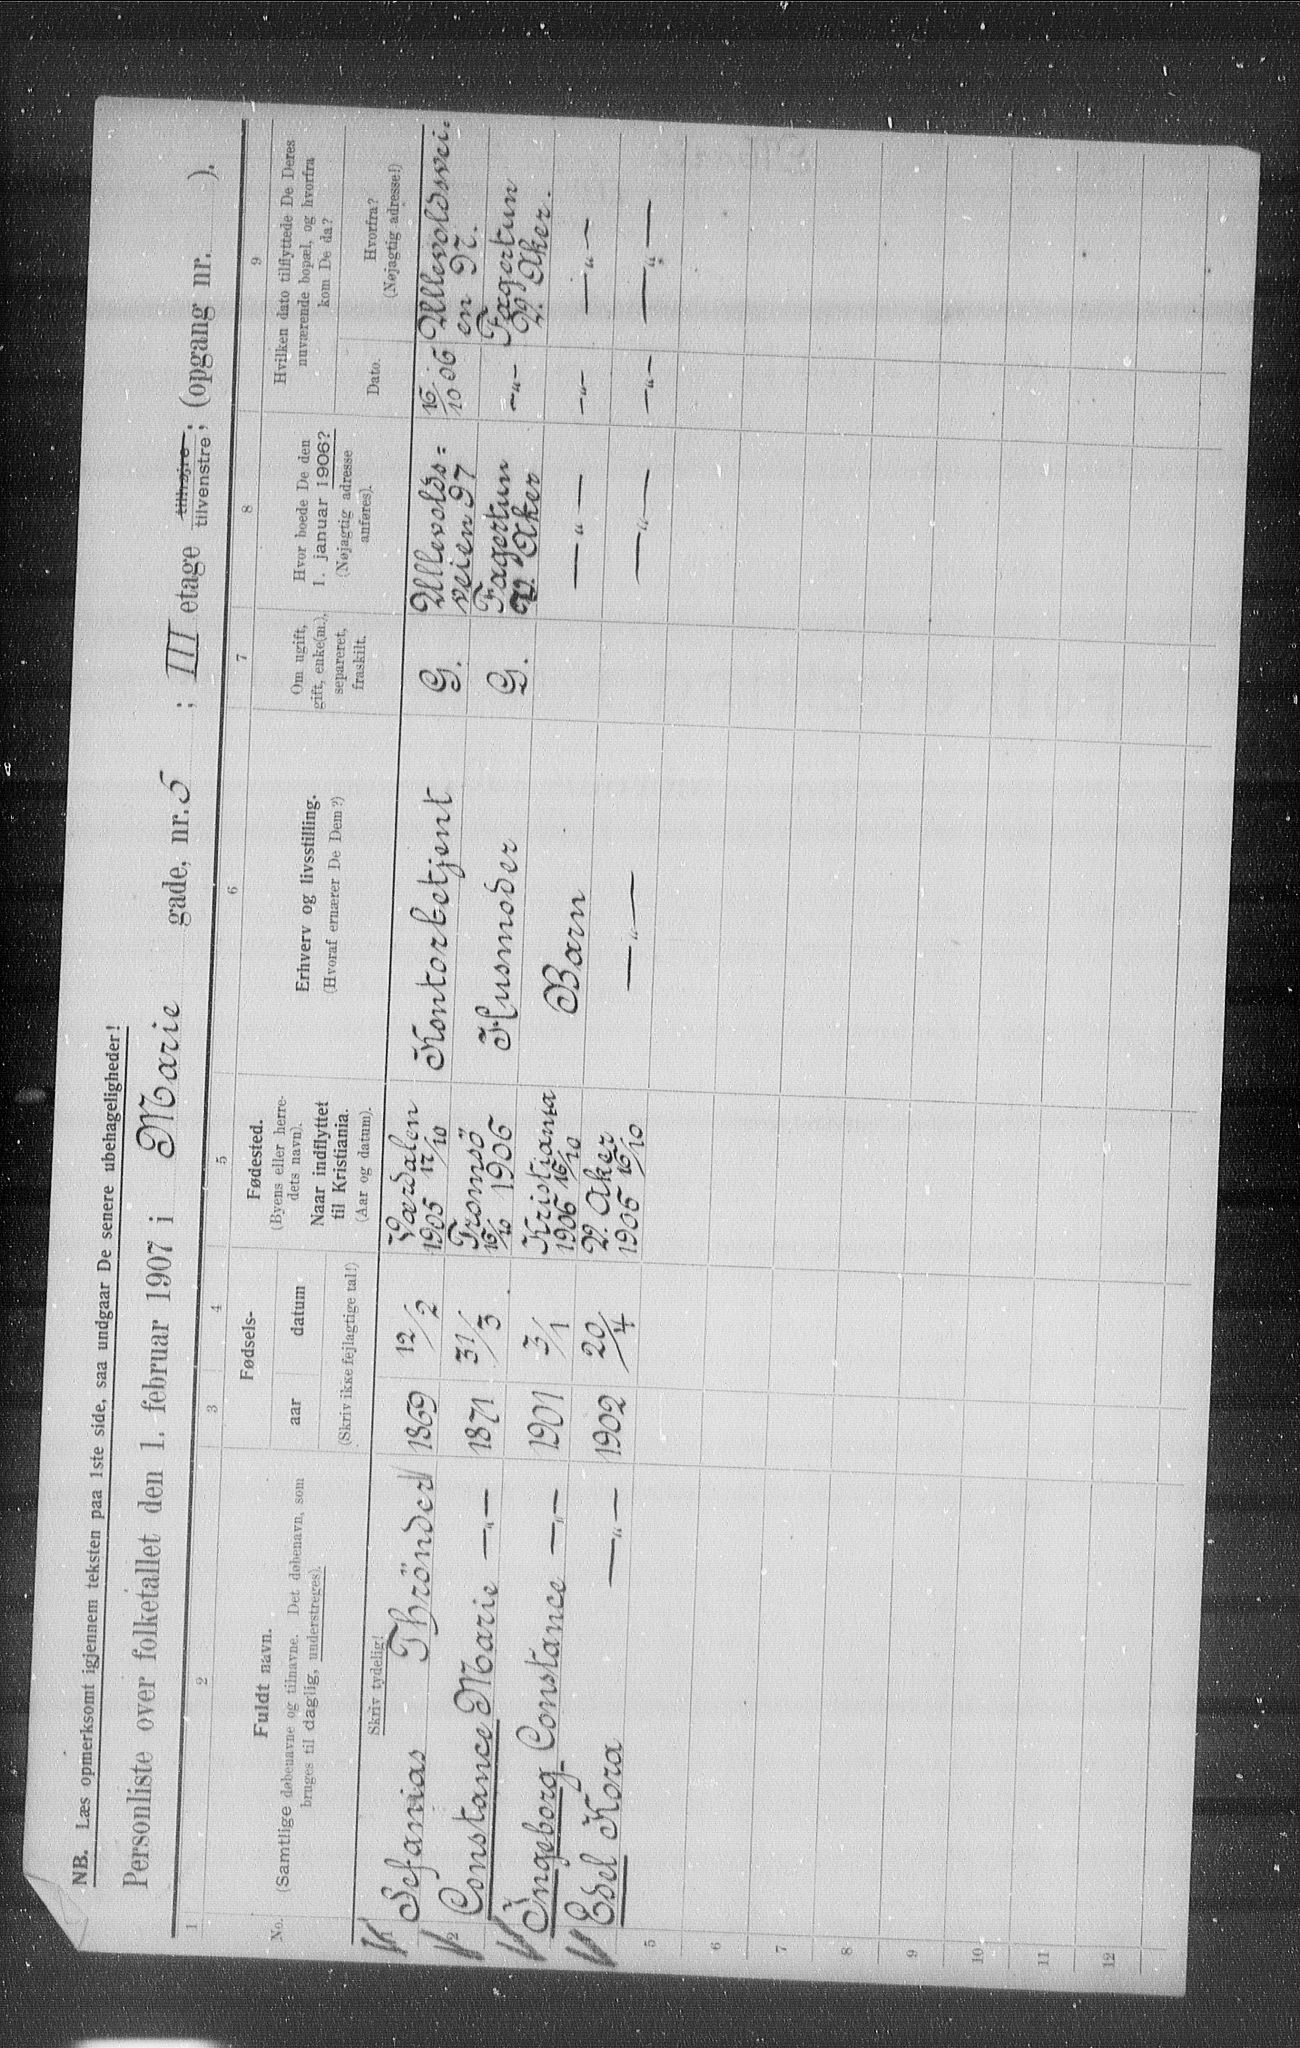 NB. Læs opmerksomt igjennem teksten paa 1ste side, saa undgaar De senere ubehageligheder!
Personliste over folketallet den 1. februar 1907 i Marie gade, nr. 5 ; III etage tilhøjre, tilvenstre; (opgang nr. ).
1 2 3 4 5 6 7 8 9
No.
Fuldt navn.
(Samtlige døbenavne og tilnavne. Det døbenavn, som
bruges til daglig, understreges).
Skriv tydelig!
Fødsels-
aar datum
(Skriv ikke fejlagtige tal!)
Fødested.
(Byens eller herre-
dets navn).
Naar indflyttet
til Kristiania.
(Aar og datum).
Erhverv og livsstilling.
(Hvoraf ernærer De Dem?)
Om ugift,
gift, enke(m.),
separeret,
fraskilt.
Hvor boede De den
1. januar 1906?
(Nøjagtig adresse
anføres).
Hvilken dato tilflyttede De Deres
nuværende bopæl, og hvorfra
kom De da?
Dato.
Hvorfra?
(Nøjagtig adresse!)
1 Sefanias Thrönder 1869 12/2 Værdalen 1905 12/10 Kontorbetjent G. Ullevolds=veien 97 16/10 06 Ullevoldsveien 97.
2 Constance Marie —„— 1871 31/3 Tromsö 16/10 1906 Husmoder G. Fagertun V. Aker —„— Fagertun V. Aker.
Ingeborg Constance —„— 1901 3/1 Kristiania 1906 16/10 Barn —„— —„— —„—
Edel Kora —„— 1902 20/4 V. Aker 1906 16/10 —„— —„— —„— —„—
5
6
7
8
9
10
11
12